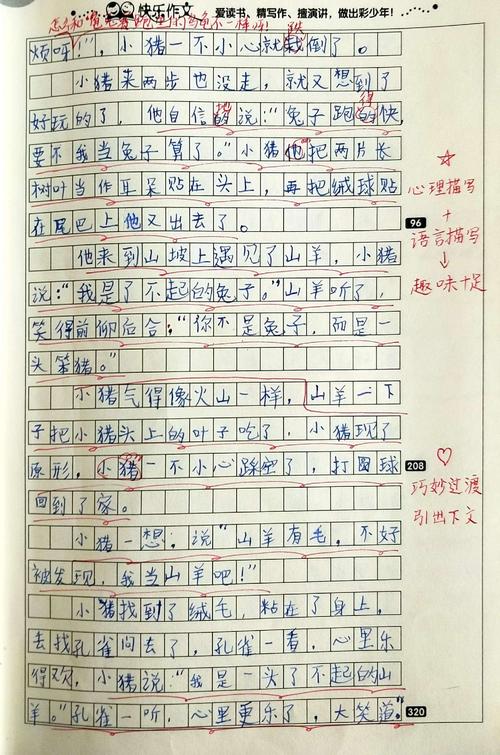 快乐作文 爱读书、精写作、擅演讲，做出彩少年！
跌
烦呀！”，小猪一不小心就栽倒了。
小猪来两步也没走，就又想到了
地 得
好玩的了，他自信的说：“兔子跑的快，
要不我当兔子算了。”小猪他把两片长
树叶当作耳朵贴在头上，再把绒球贴
在尾巴上他又出去了。
他来到山坡上遇见了山羊，小猪
说：“我是了不起的兔子。”山羊听了，
笑得前仰后合：“你不是兔子，而是一
头笨猪。”
小猪气得像火山一样，山羊一下
子把小猪头上的叶子吃了，小猪现了
原形，小猪一不小心踩空了，打圆球
回到了家。
小猪一想：说“山羊有毛，不好
被发现，我当山羊吧！”
小猪找到了绒毛，粘在了身上，
去找孔雀问去了，孔雀一看，心里乐
得欢，小猪说：“我是一头了不起的山
羊。”孔雀一听，心里更乐了，大笑道。“
心理描写
+
96
语言描写
↓
趣味十足
208
巧妙过渡
引出下文
320